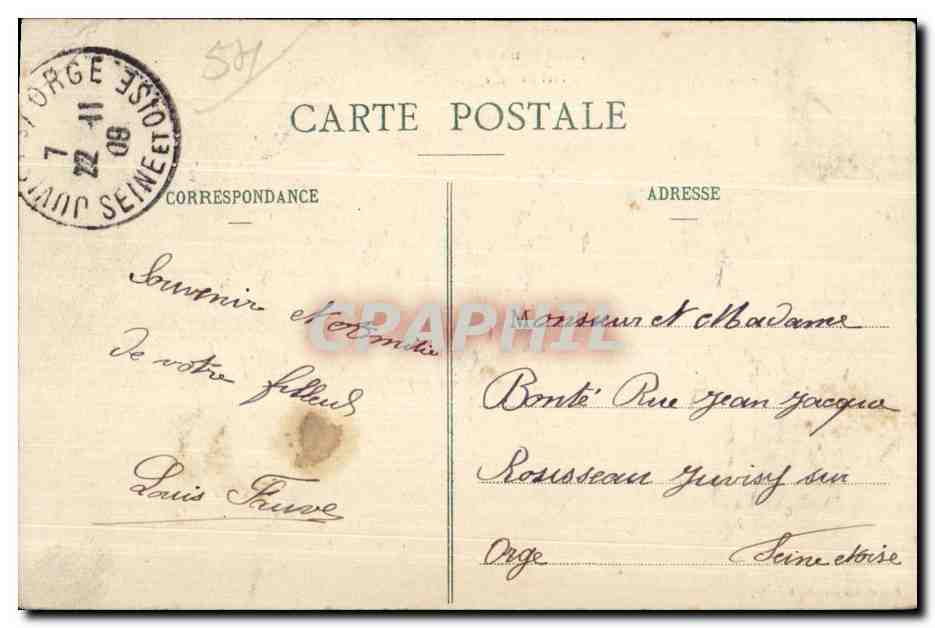 54
CARTE POSTALE
JUVISY-S-ORGE SEINE ET OISE
7
22 11
09
CORRESPONDANCE
ADRESSE
Souvenir et Amitié
de votre filleul
Louis Fauve
Monsieur et Madame
Bonté Rue Jean Jacque
Rousseau Juvisy sur
Orge Seine et oise
CPAPHIL